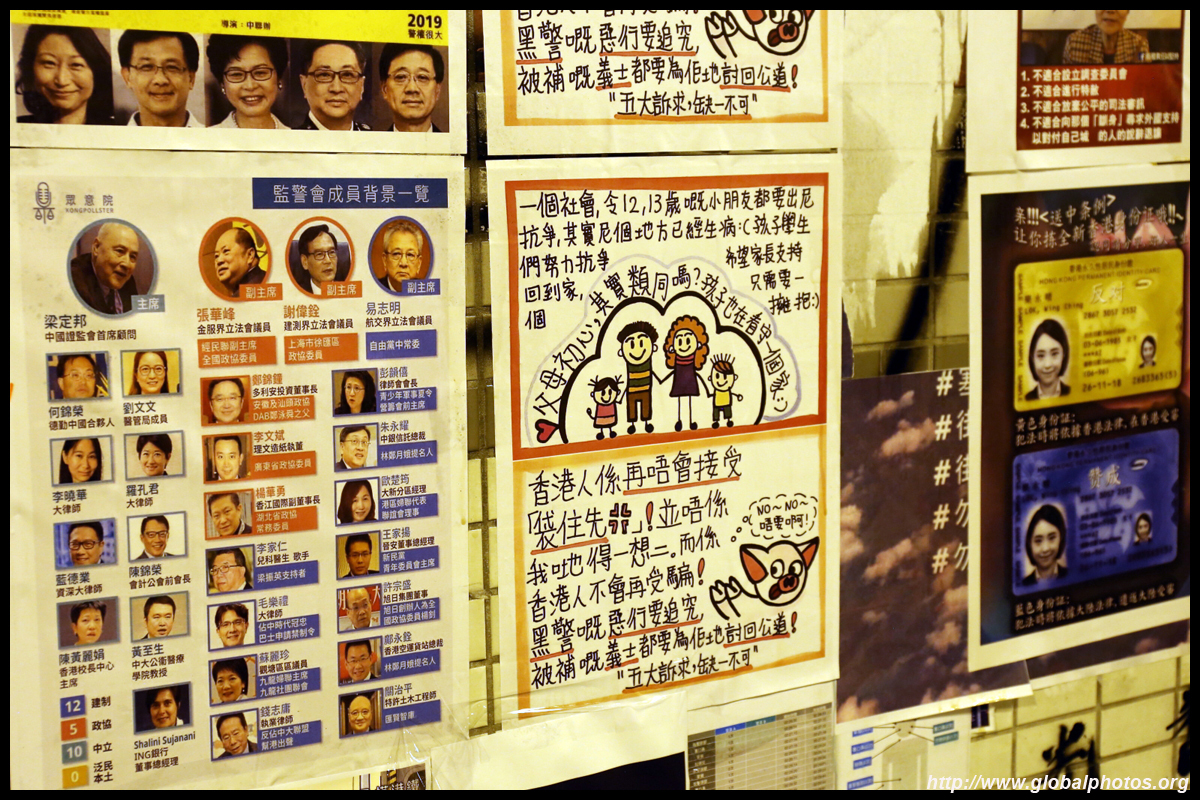 導演：中聯辦
2019
警權很大
眾意院
KONGPOLLSTER
監警會成員背景一覽
主席
梁定邦
中國證監會首席顧問
副主席
張華峰
金服界立法會議員
經民聯副主席
全國政協委員
副主席
謝偉銓
建測界立法會議員
上海市徐匯區
政協委員
副主席
易志明
航交界立法會議員
自由黨中常委
何錦榮
德勤中國合夥人
劉文文
醫管局成員
李曉華
大律師
羅孔君
大律師
藍德業
資深大律師
陳錦榮
會計公會前會長
陳黃麗娟
香港校長中心
主席
黃至生
中大公衛醫療
學院教授
Shalini Sujanani
ING銀行
董事總經理
12 建制
5 政協
10 中立
0 泛民
本土
鄭錦鐘
多利安投資董事長
安徽及汕頭政協
DAB鄭泳舜之父
李文斌
理文造紙執董
廣東省政協委員
楊華勇
香江國際副董事長
湖北省政協
常務委員
李家仁
兒科醫生 歌手
梁振英支持者
毛樂禮
大律師
佔中時代冠忠
巴士申請禁制令
蘇麗珍
觀塘區區議員
九龍婦聯主席
九龍社團聯會
錢志庸
執業律師
反佔中大聯盟
幫港出聲
彭韻僖
律師會會長
青少年軍事夏令
營籌會前主席
朱永耀
中銀信託總裁
林鄭月娥提名人
歐楚筠
大新分區經理
港區婦聯代表
聯誼會理事
王家揚
晉安董事總經理
新民黨
青年委員會主席
許宗盛
旭日集團董事
旭日創辦人為全
國政協委員楊釗
鄭永銓
香港空運貨站總裁
林鄭月娥提名人
關治平
特許土木工程師
匯賢智庫
黑警嘅惡行要追究,
被補嘅義士都要為佢地討回公道!
"五大訴求,缺一不可"
一個社會,令12,13歲嘅小朋友都要出尼
抗爭,其實尼個地方已經生病:( 孩子學生
們努力抗爭
回到家,
個
希望家長支持
只需要一
擁抱:)
父母初心,其實類同嗎?孩子也在看守一個家:)
香港人係再唔會接受
「袋住先」!並唔係
我哋得一想二,而係
香港人不會再受騙!
黑警嘅惡行要追究,
被補嘅義士都要為佢地討回公道!
"五大訴求,缺一不可"
NO~NO~
唔要啊!
1. 不適合設立調查委員會
2. 不適合進行特赦
3. 不適合放棄公平的司法審訊
4. 不適合向那個「獻身」尋求外國支持
以對付自己城 的人的說辭退讓
#
#
#
#勿
#勿
<送中条例>
HONG KONG PERMANENT IDENTITY CARD
反对
26-11-18
黃色身份証:
犯法時將依據香港法律,在香港受審
HONG KONG PERMANENT IDENTITY CARD
贊成
26-11-18
藍色身份証:
犯法時將依據大陸法律,遣送大陸受審
http://www.globalphotos.org